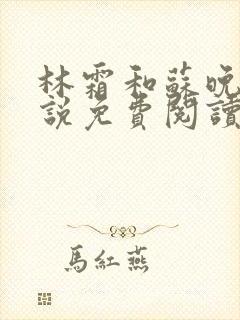 林霜和蘇晚
說免費閱讀
馬紅燕